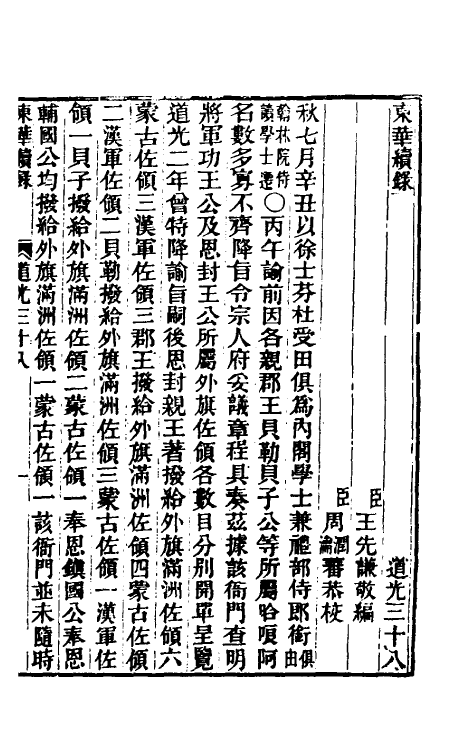 東華續錄　道光三十八
臣王先謙敬編
臣周潤蕃周瀹蕃恭校
秋七月辛丑以徐士芬杜受田俱爲內閣學士兼禮部侍郎銜俱由
翰林院侍讀學士遷○丙午諭前因各親郡王貝勒貝子公等所屬哈哴阿
名數多寡不齊降旨令宗人府妥議章程具奏茲據該衙門查明
將軍功王公及恩封王公所屬外旗佐領各數目分別開單呈覽
道光二年曾特降諭旨嗣後恩封親王著撥給外旗滿洲佐領六
蒙古佐領三漢軍佐領三郡王撥給外旗滿洲佐領四蒙古佐領
二漢軍佐領二貝勒撥給外旗滿洲佐領三蒙古佐領一漢軍佐
領一貝子撥給外旗滿洲佐領二蒙古佐領一奉恩鎭國公奉恩
輔國公均撥給外旗滿洲佐領一蒙古佐領一該衙門並未隨時
東華續錄　道光三十八　一